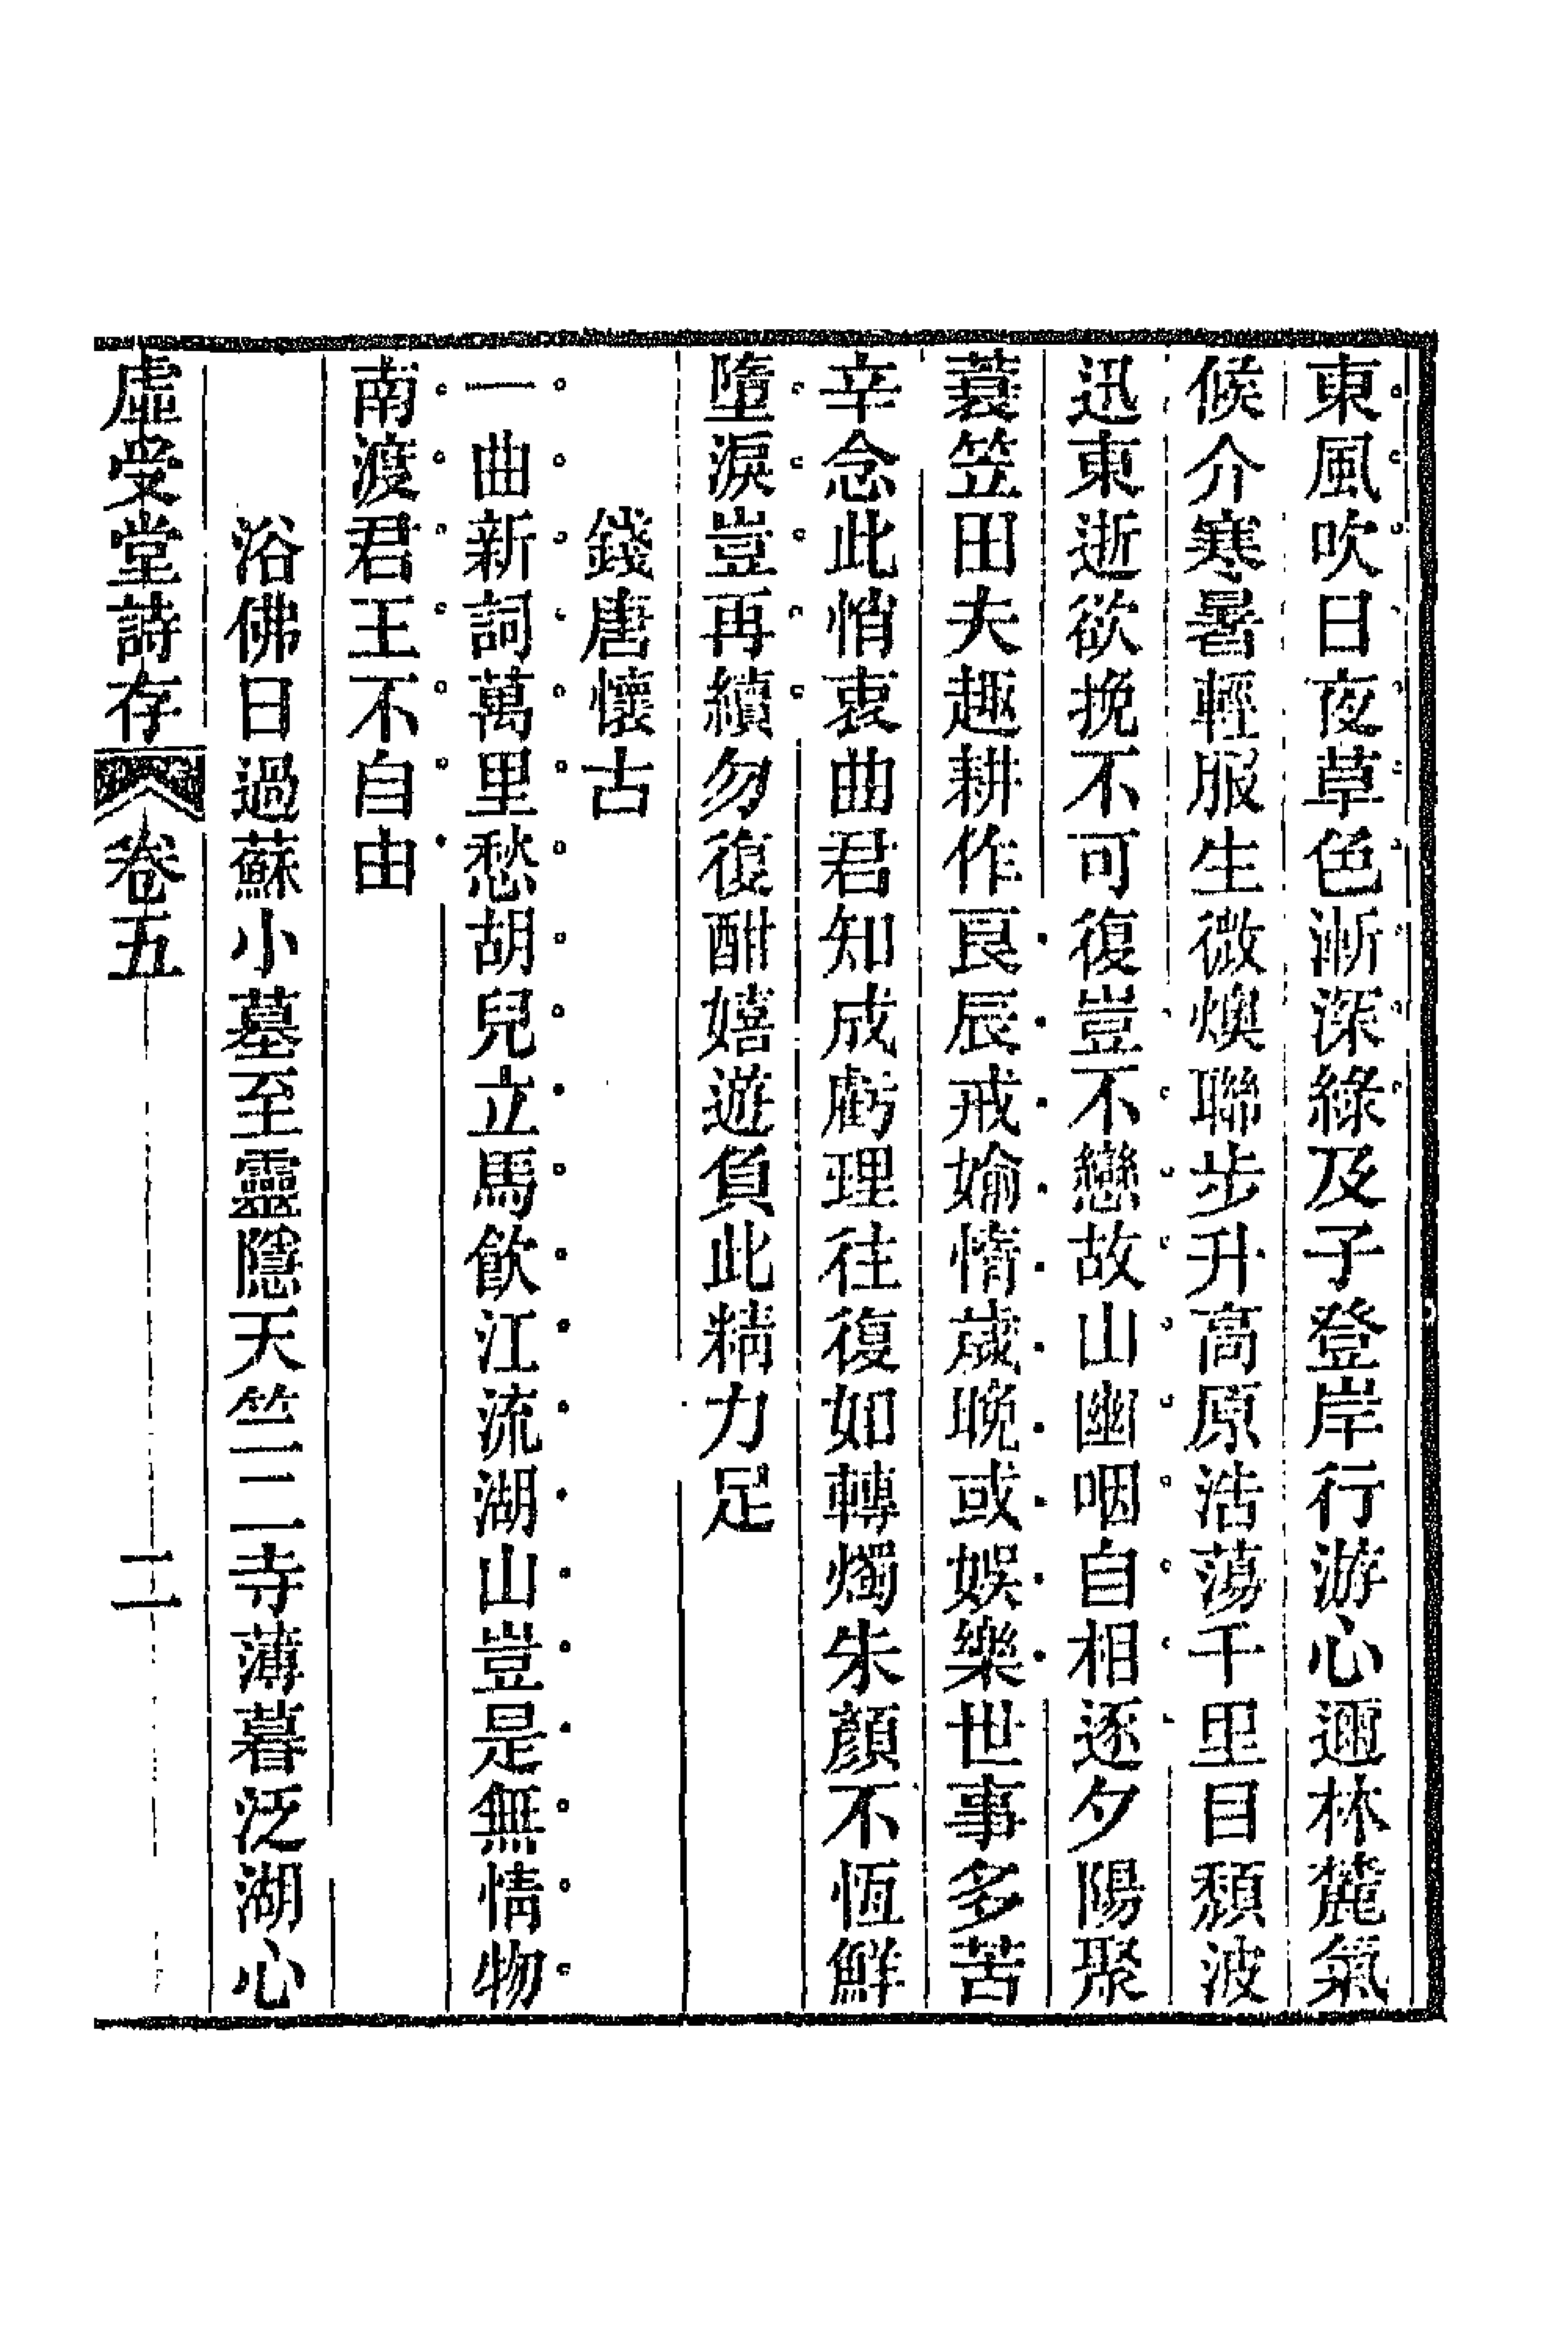 東風吹日夜草色漸深綠及子登岸行游心邇林麓氣
候介寒暑輕服生微燠聯步升高原浩蕩千里目頹波
迅東逝欲挽不可復豈不戀故山幽咽自相逐夕陽聚
蓑笠田夫趣耕作良辰戒媮惰歲晚或娛樂世事多苦
辛念此悄衷曲君知成虧理往復如轉燭朱顏不恆鮮
墮淚豈再續勿復酣嬉遊負此精力足
錢唐懷古
一曲新詞萬里愁胡兒立馬飲江流湖山豈是無情物
南渡君王不自由
浴佛日過蘇小墓至靈隱天竺二寺薄暮泛湖心
虛受堂詩存 卷五 二